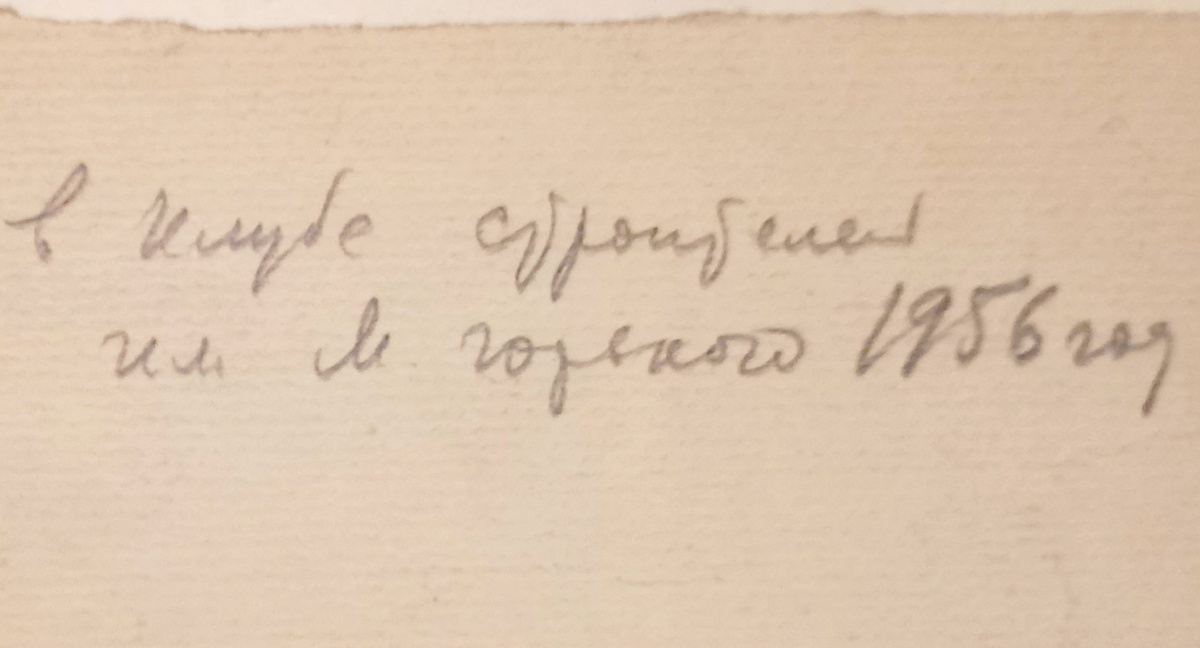 в клубе строителей
им М горького 1956 год